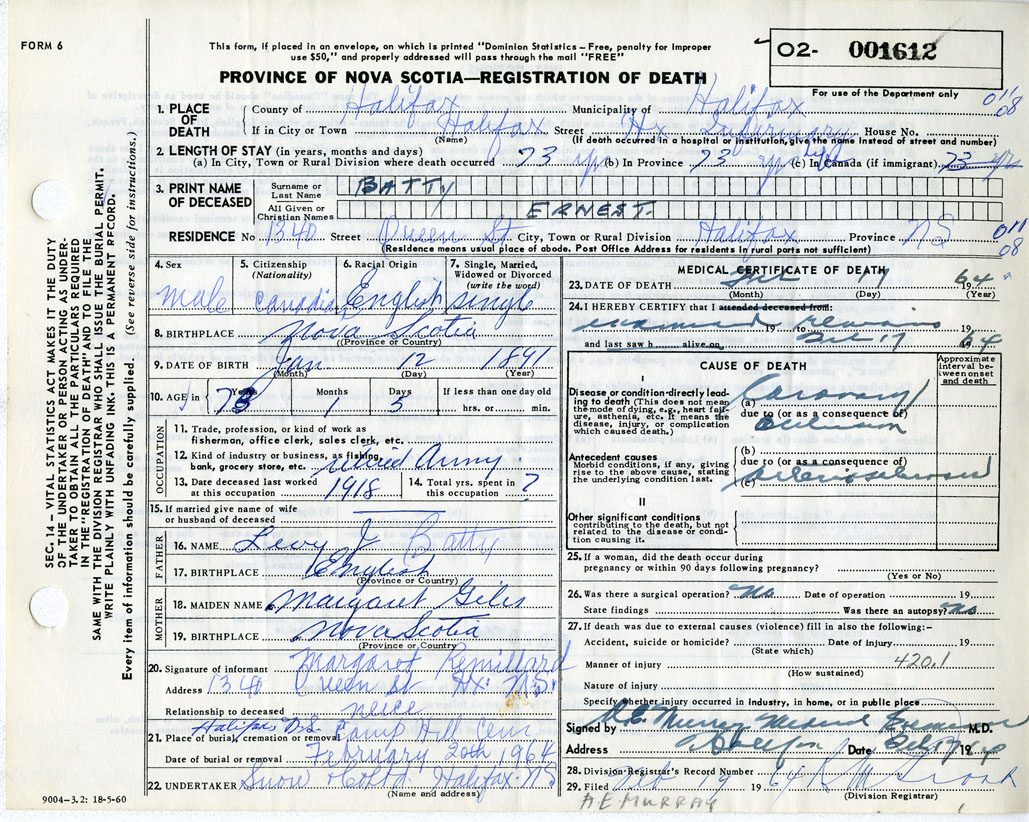 FORM 6
This form, if placed in an envelope, on which is printed "Dominion Statistics – Free, penalty for improper
use $50," and properly addressed will pass through the mail "FREE"
02- 001612
PROVINCE OF NOVA SCOTIA—REGISTRATION OF DEATH
For use of the Department only
011
08
1. PLACE OF DEATH
County of Halifax Municipality of Halifax
If in City or Town Halifax Street Hx Infirmary House No.
(Name) (If death occurred in a hospital or institution, give the name instead of street and number)
2. LENGTH OF STAY (in years, months and days)
(a) In City, Town or Rural Division where death occurred 73 yrs (b) In Province 73 yrs (c) In Canada (if immigrant) 73 yrs
3. PRINT NAME OF DECEASED
Surname or Last Name BATTY
All Given or Christian Names ERNEST.
RESIDENCE No 1340 Street Queen St City, Town or Rural Division Halifax Province NS
011
08
(Residence means usual place of abode. Post Office Address for residents in rural parts not sufficient)
4. Sex
male
5. Citizenship
(Nationality)
Canadian
6. Racial Origin
English
7. Single, Married,
Widowed or Divorced
(write the word)
single
8. BIRTHPLACE Nova Scotia
(Province or Country)
9. DATE OF BIRTH Jan 12 1891
(Month) (Day) (Year)
10. AGE in
Years 73
Months 1
Days 5
If less than one day old
hrs. or min.
OCCUPATION
11. Trade, profession, or kind of work as
fisherman, office clerk, sales clerk, etc.
12. Kind of industry or business, as fishing,
bank, grocery store, etc. retired Army
13. Date deceased last worked
at this occupation 1918
14. Total yrs. spent in
this occupation ?
15. If married give name of wife
or husband of deceased
FATHER
16. NAME Levy J Batty
17. BIRTHPLACE English
(Province or Country)
MOTHER
18. MAIDEN NAME Margaret Giles
19. BIRTHPLACE Nova Scotia
(Province or Country)
20. Signature of informant Margaret Remillard
Address 1340 Queen St Hx: NS.
Relationship to deceased neice
Halifax N.S.
21. Place of burial, cremation or removal Camp Hill Cem
Date of burial or removal February 20th 1964
22. UNDERTAKER Snow & Co Ltd. Halifax NS
(Name and address)
MEDICAL CERTIFICATE OF DEATH
23. DATE OF DEATH Feb 17 1964
(Month) (Day) (Year)
24. I HEREBY CERTIFY that I attended deceased from:
examined 19 to remains 19
and last saw h alive on Feb 17 64
CAUSE OF DEATH
Approximate
interval be-
tween onset
and death
I
Disease or condition directly lead-
ing to death (This does not mean
the mode of dying, e.g., heart fail-
ure, asthenia, etc. It means the
disease, injury, or complication
which caused death).
(a) Coronary
due to (or as a consequence of)
Occlusion
Antecedent causes
Morbid conditions, if any, giving
rise to the above cause, stating
the underlying condition last.
(b)
due to (or as a consequence of)
(c) arteriosclerosis
II
Other significant conditions
contributing to the death, but not
related to the disease or condi-
tion causing it.
25. If a woman, did the death occur during
pregnancy or within 90 days following pregnancy?
(Yes or No)
26. Was there a surgical operation? No Date of operation 19
State findings Was there an autopsy? No
27. If death was due to external causes (violence) fill in also the following:–
Accident, suicide or homicide? Date of injury 19
(State which)
Manner of injury 420.1
(How sustained)
Nature of injury
Specify whether injury occurred in Industry, in home, or in public place
Signed by Murray Medical Examiner M.D.
Address Halifax Date Feb 17 1964
28. Division Registrar's Record Number
29. Filed Feb 19 1964
(Division Registrar)
A E MURRAY
9004-3.2: 18-5-60
SEC. 14 – VITAL STATISTICS ACT MAKES IT THE DUTY
OF THE UNDERTAKER OR PERSON ACTING AS UNDER-
TAKER TO OBTAIN ALL THE PARTICULARS REQUIRED
IN THE "REGISTRATION OF DEATH" AND TO FILE THE
SAME WITH THE DIVISION REGISTRAR WHO SHALL ISSUE THE BURIAL PERMIT.
WRITE PLAINLY WITH UNFADING INK. THIS IS A PERMANENT RECORD.
Every item of information should be carefully supplied. (See reverse side for instructions.)